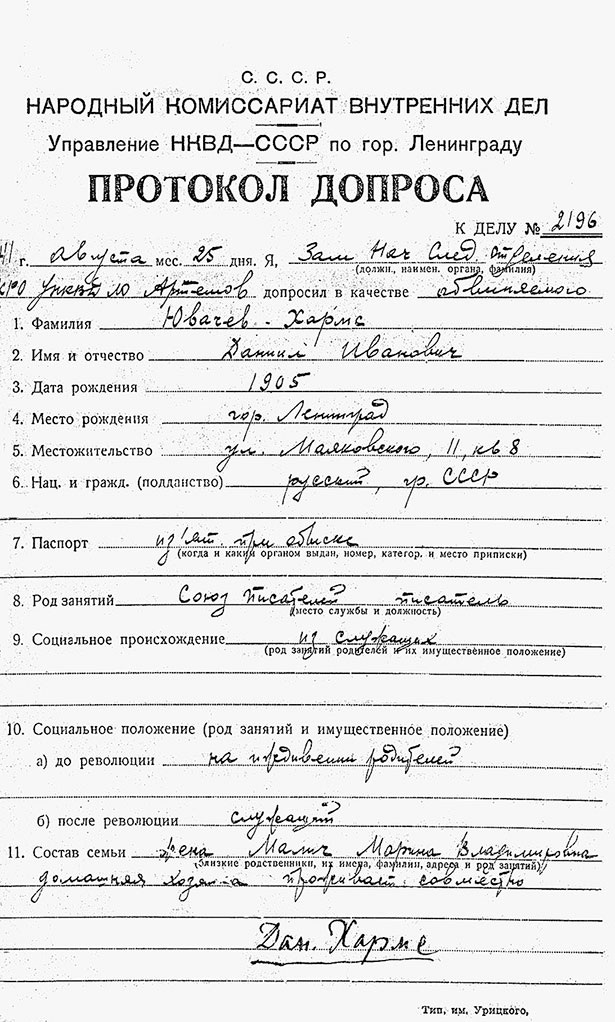 С. С. С. Р.
НАРОДНЫЙ КОМИССАРИАТ ВНУТРЕННИХ ДЕЛ
Управление НКВД—СССР по гор. Ленинграду
ПРОТОКОЛ ДОПРОСА
К ДЕЛУ № 2196
41 г. августа мес. 25 дня. Я, Зам Нач След. Отделения
(должн., наимен. органа, фамилия)
КРО УНКВД ЛО Артемов допросил в качестве обвиняемого
1. Фамилия Ювачев - Хармс
2. Имя и отчество Даниил Иванович
3. Дата рождения 1905
4. Место рождения гор. Ленинград
5. Местожительство ул. Маяковского, 11, кв 8
6. Нац. и гражд. (подданство) русский, гр. СССР
7. Паспорт из'ят. при обыске
(когда и каким органом выдан, номер, категор. и место приписки)
8. Род занятий Союз Писателей писатель
(место службы и должность)
9. Социальное происхождение из служащих
(род занятий родителей и их имущественное положение)
10. Социальное положение (род занятий и имущественное положение)
а) до революции на иждивении родителей
б) после революции служащий
11. Состав семьи жена Малич Марина Владимировна
(близкие родственники, их имена, фамилии, адреса и род занятий)
домашняя хозяйка проживает совместно
Дан. Хармс
Тип. им. Урицкого,